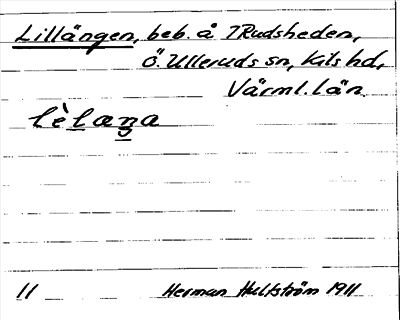 Lillängen, beb. å Rudsheden,
Ö. Ulleruds sn, Kils hd,
Värml. län.
lèlæŋa
11 Herman Hultström 1911